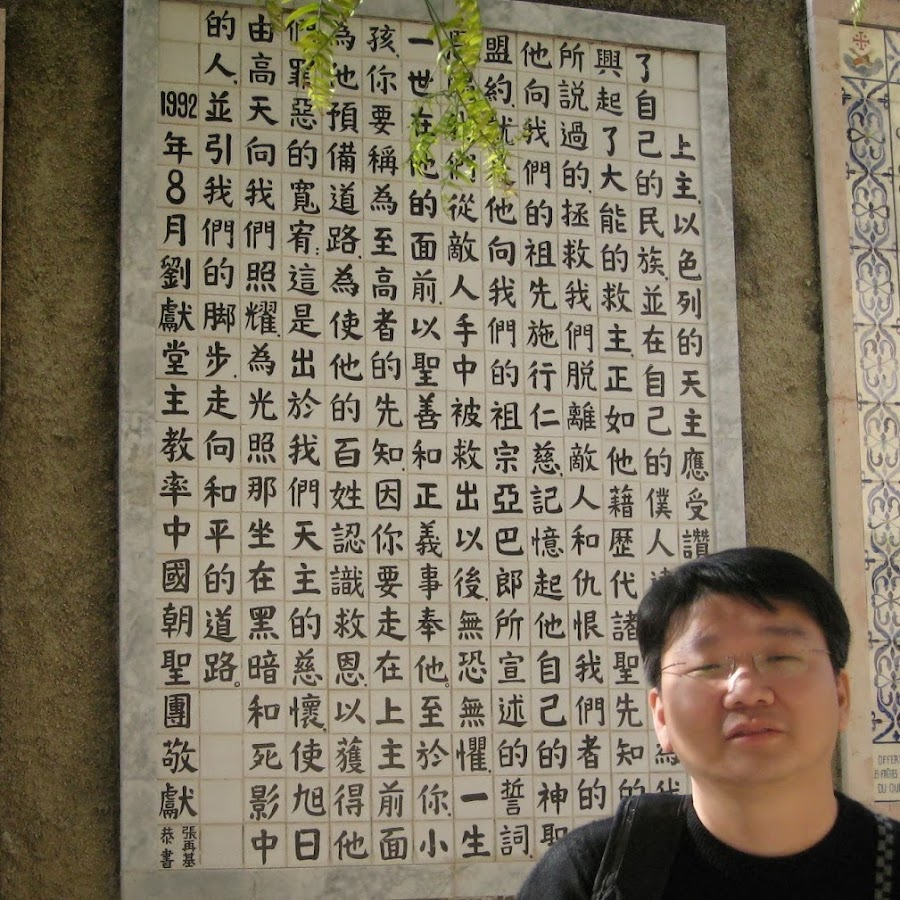 上主,以色列的天主應受讚
了自己的民族,並在自己的僕人
興起了大能的救主,正如他藉歷代諸聖先知的
所說過的,拯救我們脫離敵人和仇恨我們者的
他向我們的祖先施行仁慈,記憶起他自己的神聖
盟約,就他向我們的祖宗亞巴郎所宣述的誓詞,
們從敵人手中被救出以後,無恐無懼,一生
一世在他的面前,以聖善和正義事奉他。至於你小
孩,你要稱為至高者的先知,因你要走在上主前面
為他預備道路,為使他的百姓認識救恩,以獲得他
們罪惡的寬宥:這是出於我們天主的慈懷,使旭日
由高天向我們照耀,為光照那坐在黑暗和死影中
的人,並引我們的脚步,走向和平的道路。
1992年8月劉獻堂主教率中國朝聖團敬獻
張再基
恭書